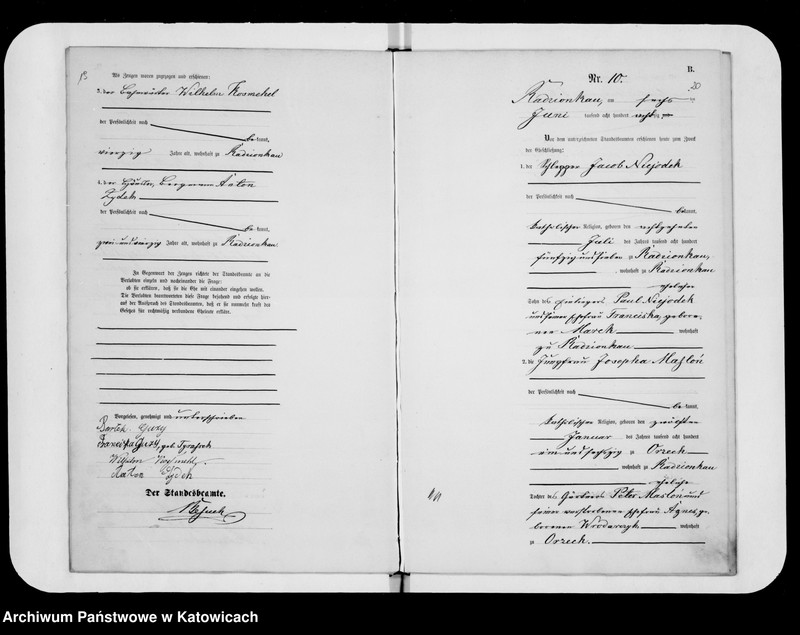 13
Als Zeugen waren zugezogen und erschienen:
3. der Wilhelm Kosmehel
der Persönlichkeit nach
be kannt,
vierzig Jahre alt, wohnhaft zu Radzionkau
4. der Häusler, Bergmann Anton
Zydek
der Persönlichkeit nach
be kannt,
zwei und vierzig Jahre alt, wohnhaft zu Radzionkau.
In Gegenwart der Zeugen richtete der Standesbeamte an die
Verlobten einzeln und nacheinander die Frage:
ob sie erklären, daß sie die Ehe mit einander eingehen wollen.
Die Verlobten beantworteten diese Frage bejahend und erfolgte hier-
auf der Ausspruch des Standesbeamten, daß er sie nunmehr kraft des
Gesetzes für rechtmäßig verbundene Eheleute erkläre.
Vorgelesen, genehmigt und unterschrieben
Bartek Guzy
Franciska Guzy, geb. Tyrassek
Wilhelm
Anton Zydek
Der Standesbeamte.
B.
20
Nr. 10.
Radzionkau, am sechs ten
Juni tausend acht hundert achtzig
Vor dem unterzeichneten Standesbeamten erschienen heute zum Zweck
der Eheschließung:
1. der Schlepper Jacob Niejodek
der Persönlichkeit nach
be kannt,
katholischer Religion, geboren den achtzehnten
Juli des Jahres tausend acht hundert
fünfzig und sieben zu Radzionkau,
wohnhaft zu Radzionkau
ehelicher
Sohn des Einliegers Paul Niejodek
und seiner Ehefrau Franciska, gebore-
nen Marek wohnhaft
zu Radzionkau
2. die Jungfrau Josepha Maslon
der Persönlichkeit nach
be kannt,
katholischer Religion, geboren den zwölften
Januar des Jahres tausend acht hundert
ein und sechzig zu Orzech
wohnhaft zu Radzionkau
eheliche
Tochter des Gärtners Peter Maslon und
seiner verstorbenen Ehefrau Agnes, ge-
borenen Wrodarczyk wohnhaft
zu Orzech.
Archiwum Państwowe w Katowicach